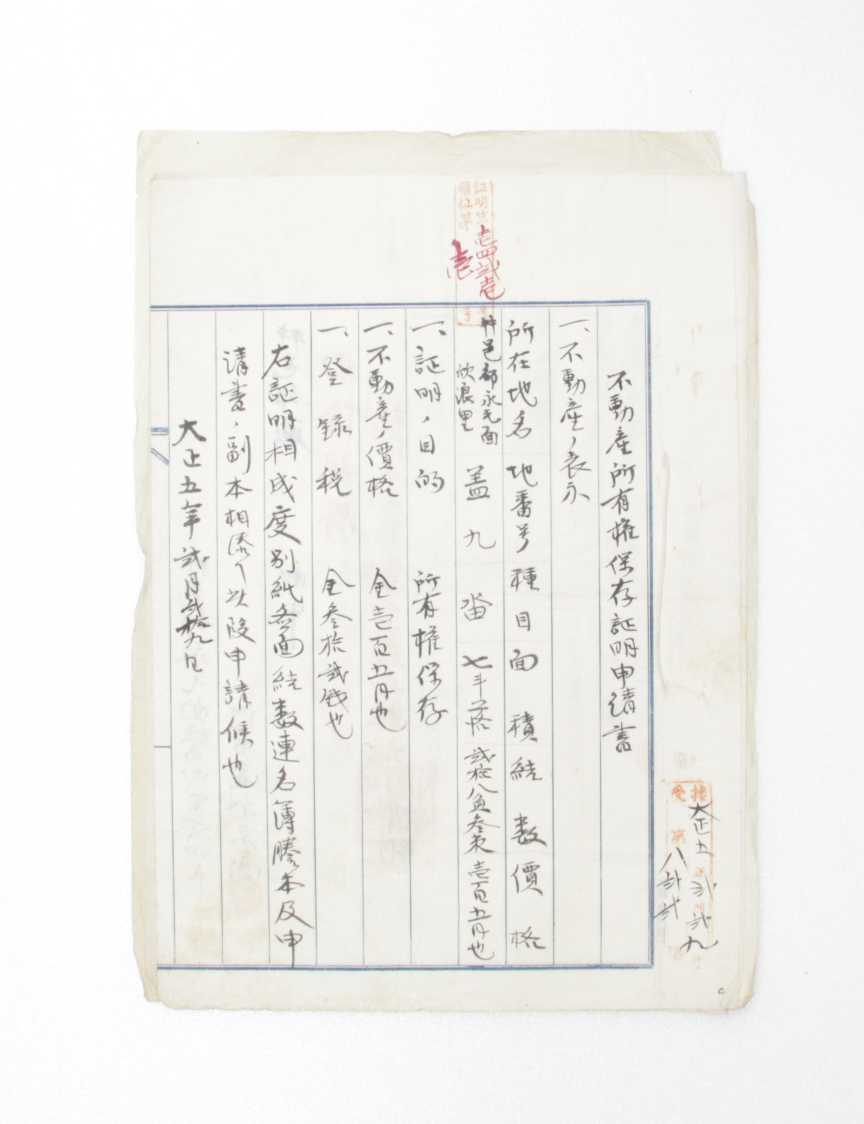 接受 大正五年 弐月 弐九日
第 八弐弐 号
不動産所有権保存証明申請書
一、不動産ノ表示
所在地名 地番号 種目 面積 結数 價格
永元面 欣浪里 盖九 畓 七斗落 弐拾八負叁束 壱百五円也
証明第壱四弐 号
順位第壱 号
一、証明ノ目的 所有権保存
一、不動産ノ價格 金壱百五円也
一、登録税 金叁拾弐銭也
右証明相成度別紙 面結数連名簿謄本及申
請書ノ副本相添ヘ此段申請候也
大正五年弐月弐拾九日